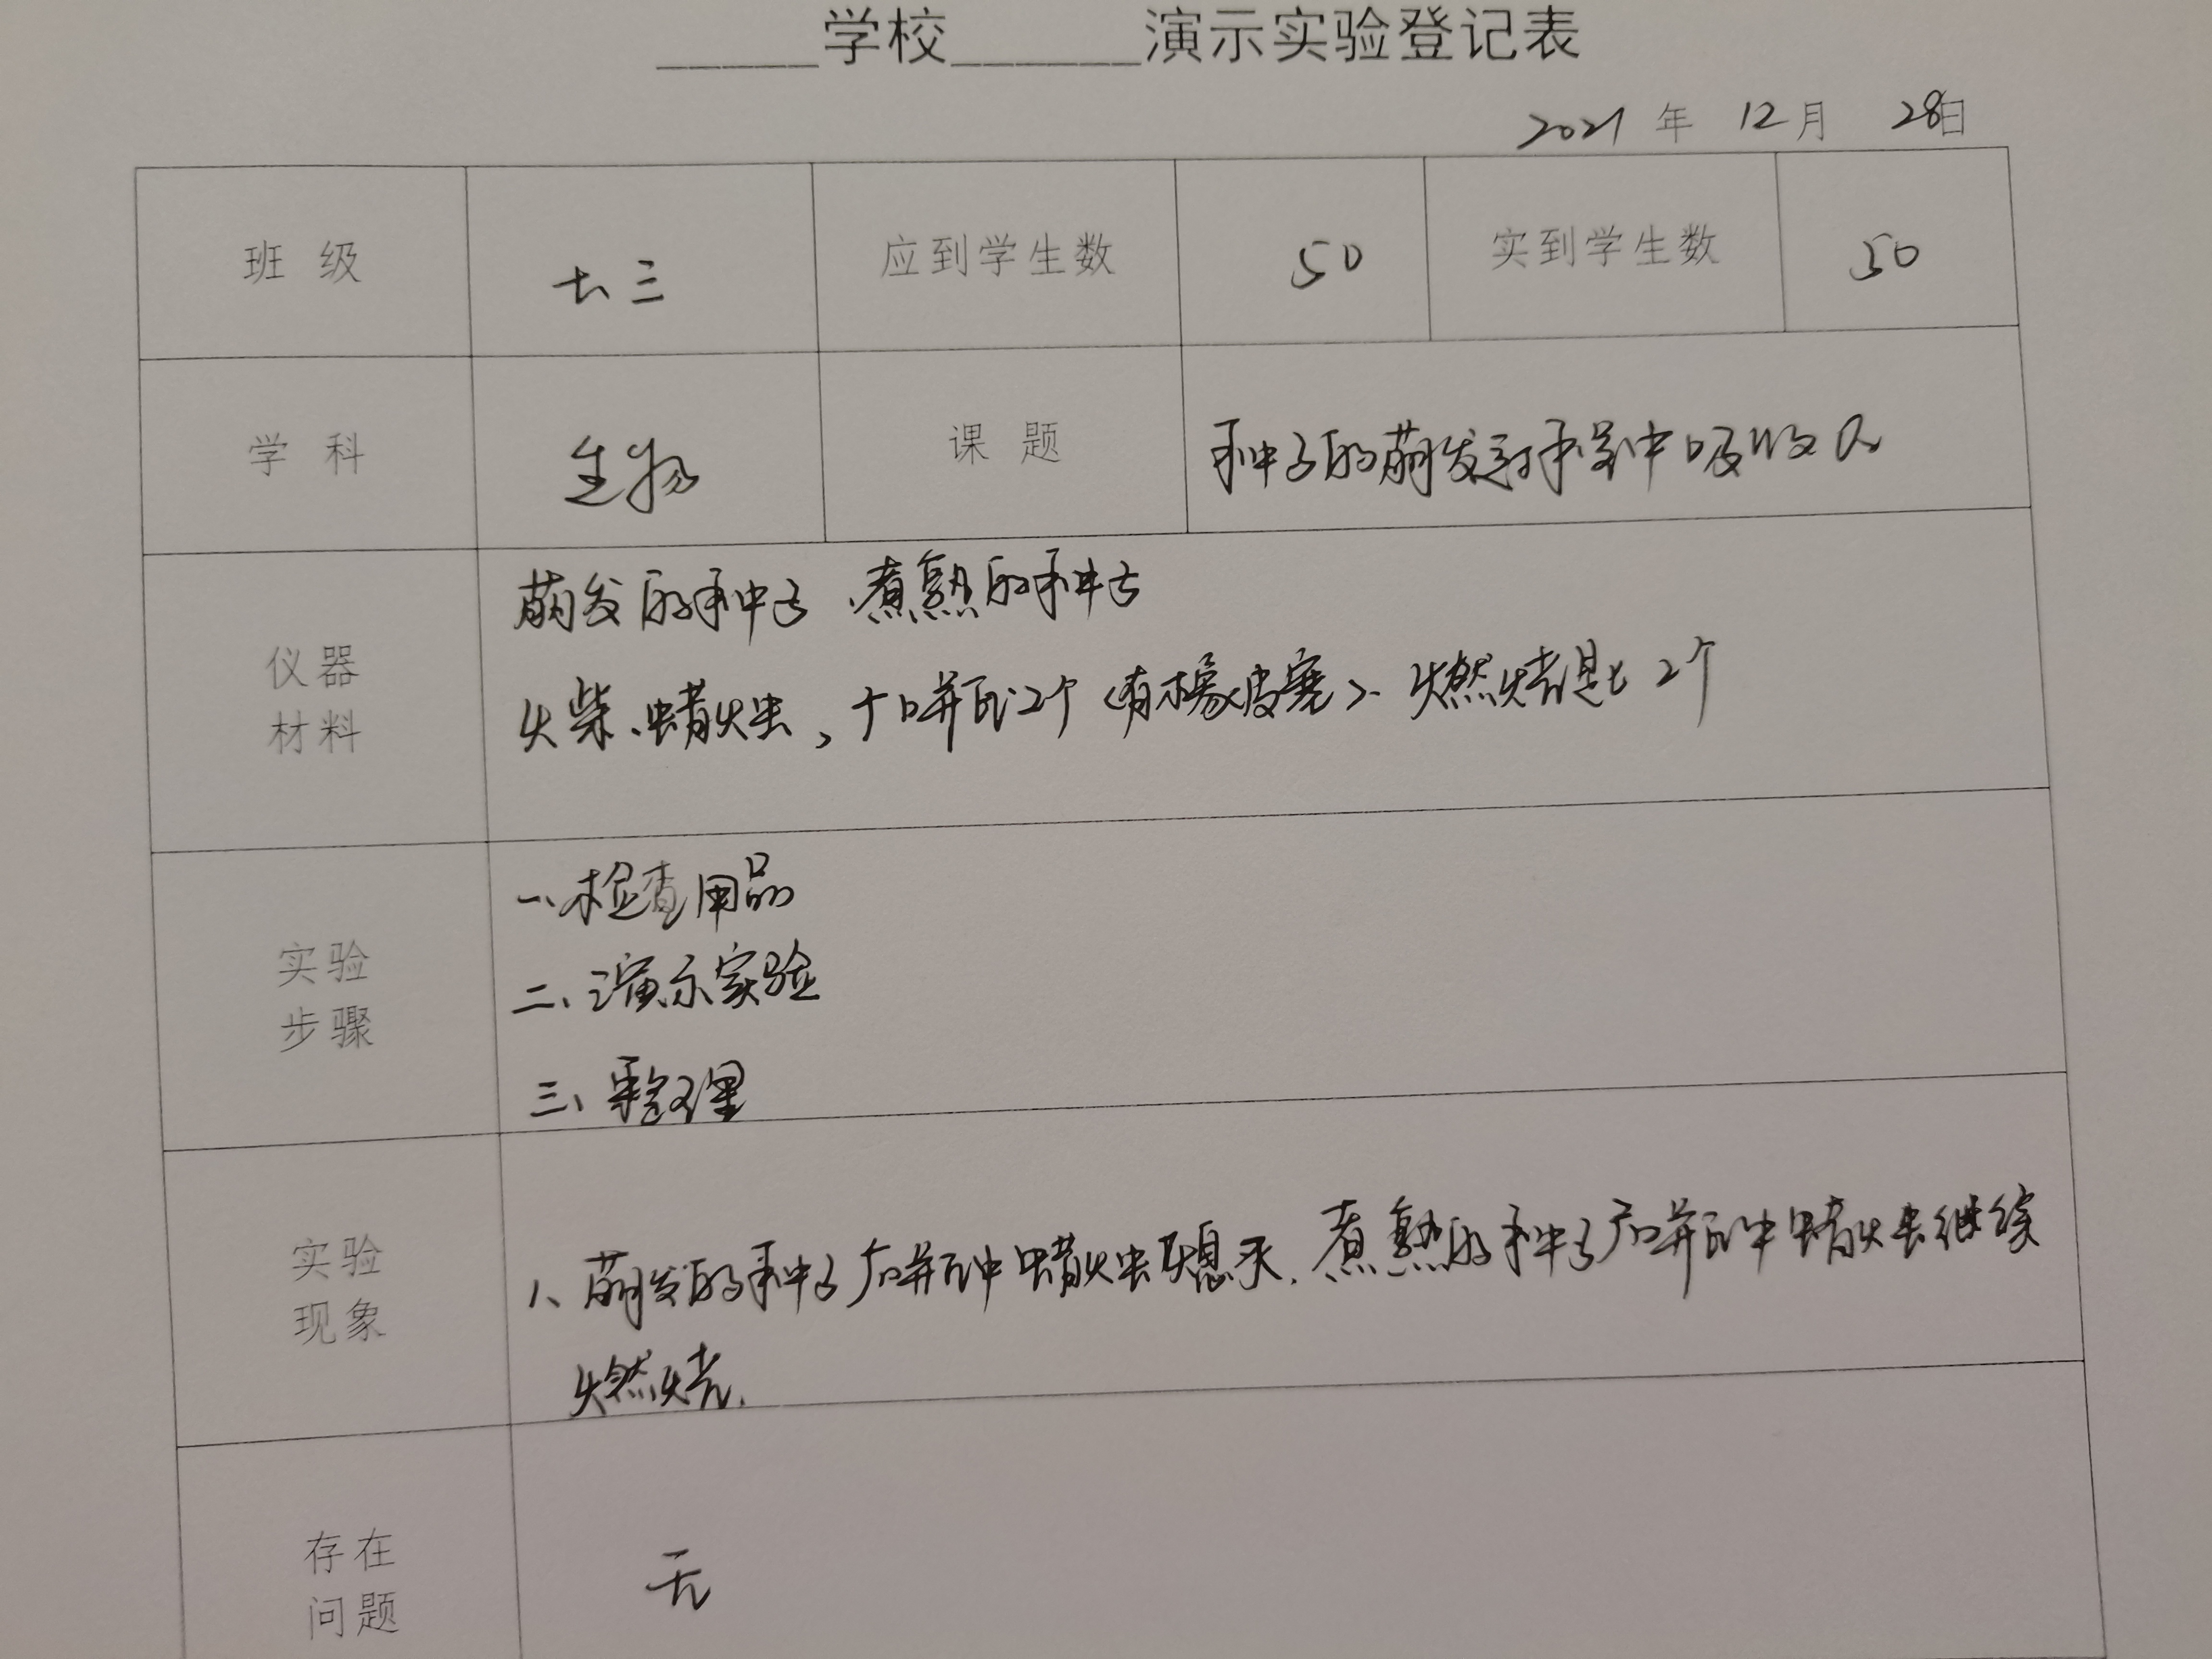 _____学校______演示实验登记表
2021 年 12 月 28日
班 级 七、三 应到学生数 50 实到学生数 50
学 科 生物 课 题 种子的萌发 中吸收O₂
仪器
材料
萌发的种子、煮熟的种子
火柴、蜡烛、广口瓶2个(有橡皮塞)、燃烧匙2个
实验
步骤
一、检查用品
二、演示实验
三、整理
实验
现象
1、萌发的种子广口瓶中蜡烛熄灭.煮熟的种子广口瓶中蜡烛继续
燃烧.
存在
问题
无